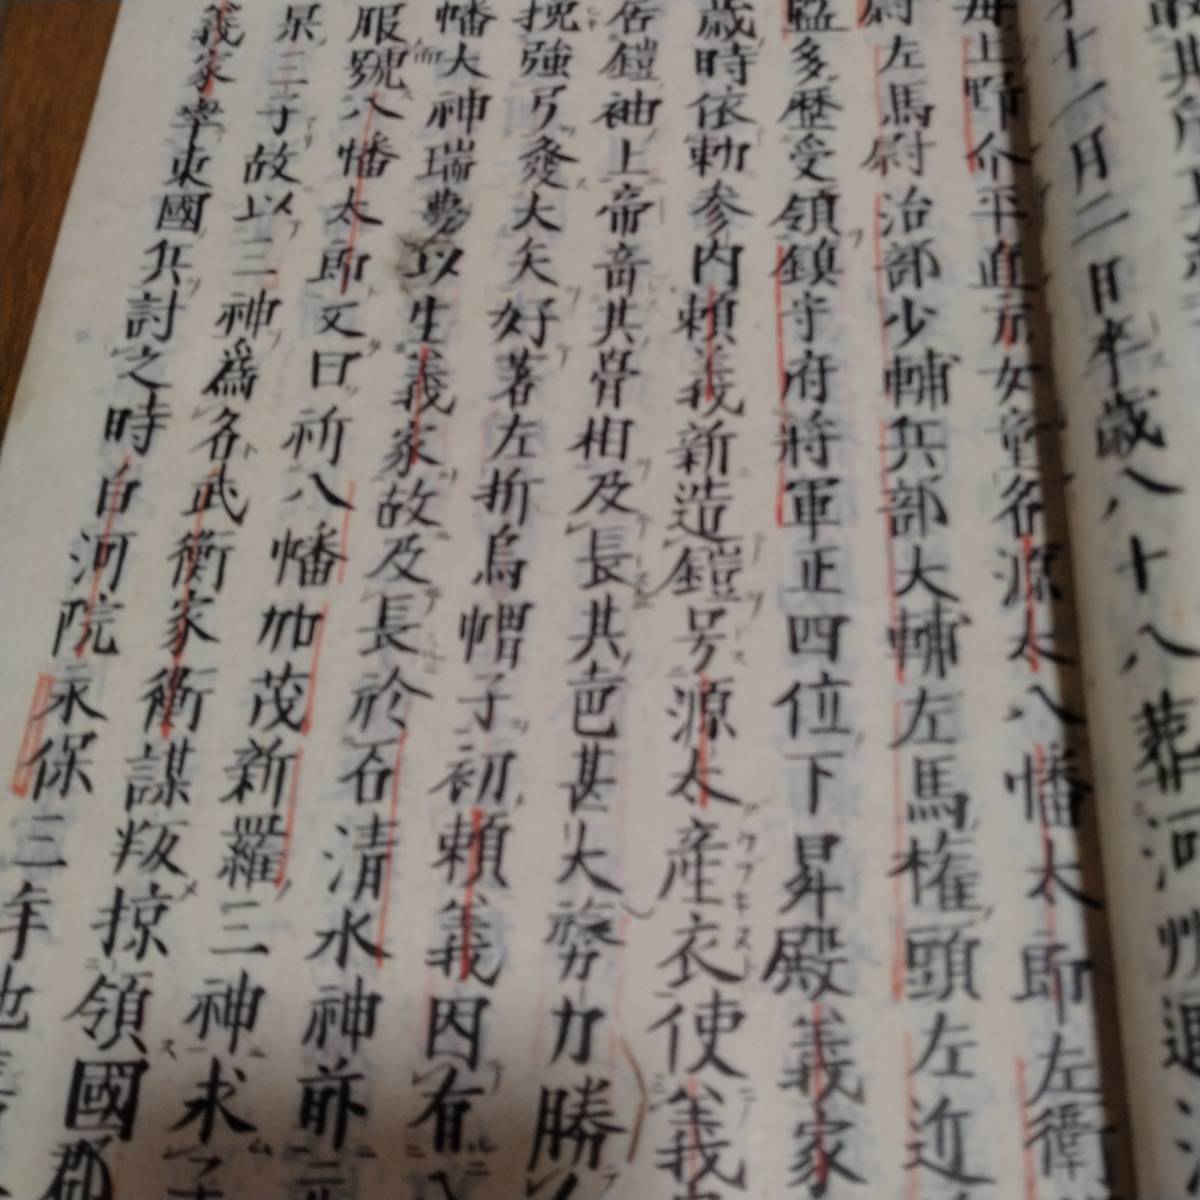 十一月二日卒歳八十八葬河州通
母上野介平直方女童名源太八幡太郎左衛
尉左馬尉治部少輔兵部大輔左馬權頭左近
監多歴受領鎮守府將軍正四位下昇殿義家
歳時依勅参内頼義新造鎧号源太産衣使義
居鎧袖上帝奇其骨相及長其皃甚大膂力勝
挽強弓發大矢好著左折烏帽子初頼義因有八
幡大神瑞夢以生義家故及長於石清水神前
服號八幡太郎文曰祈八幡加茂新羅三神求
果三子故以三神爲名武衡家衡謀叛掠領國郡
義家率東國兵討之時白河院永保三年也